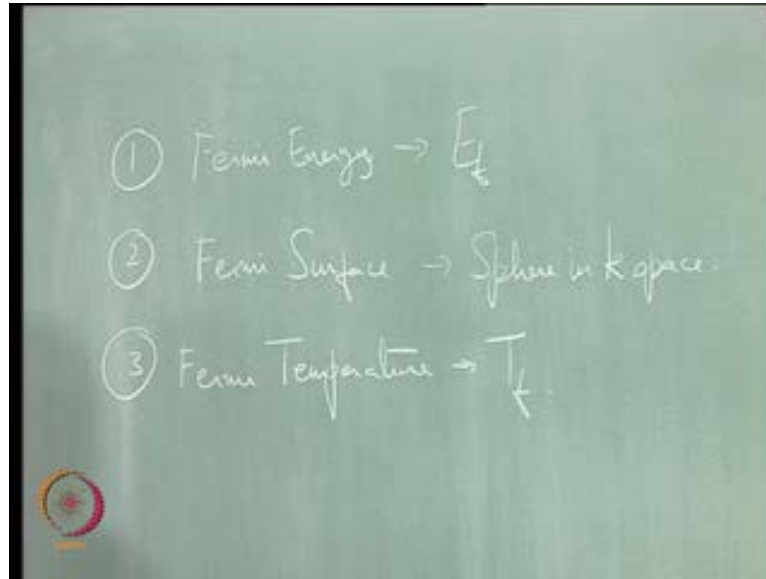 ① Fermi Energy → E_f
② Fermi Surface → Sphere in k space.
③ Fermi Temperature → T_f.